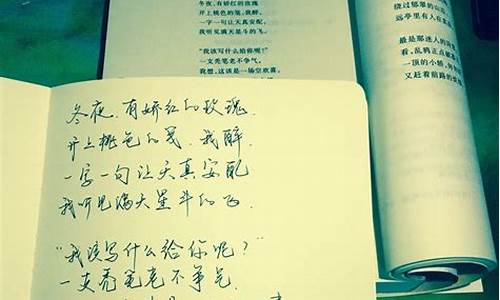 冬夜,有娇红的玫瑰
开上桃色的笺,我醉,
一字一句让天真安配,
我听见满天星斗的飞。
“我该写什么给你呢?”
一支秃笔老不争气,
我想,这该是一场空欢喜。
绕过郁翠的山
远亭里有人在
最是那迷人的
看,乱鸦正点
一顶的小轿,
又赶着前路的
冬夜,有娇红的玫瑰,
开上桃色的笺,我醉,
一字一句让天真安配
我听见满天星斗的飞.
“我该写什么给你呢?”
一支秃笔老不争气.